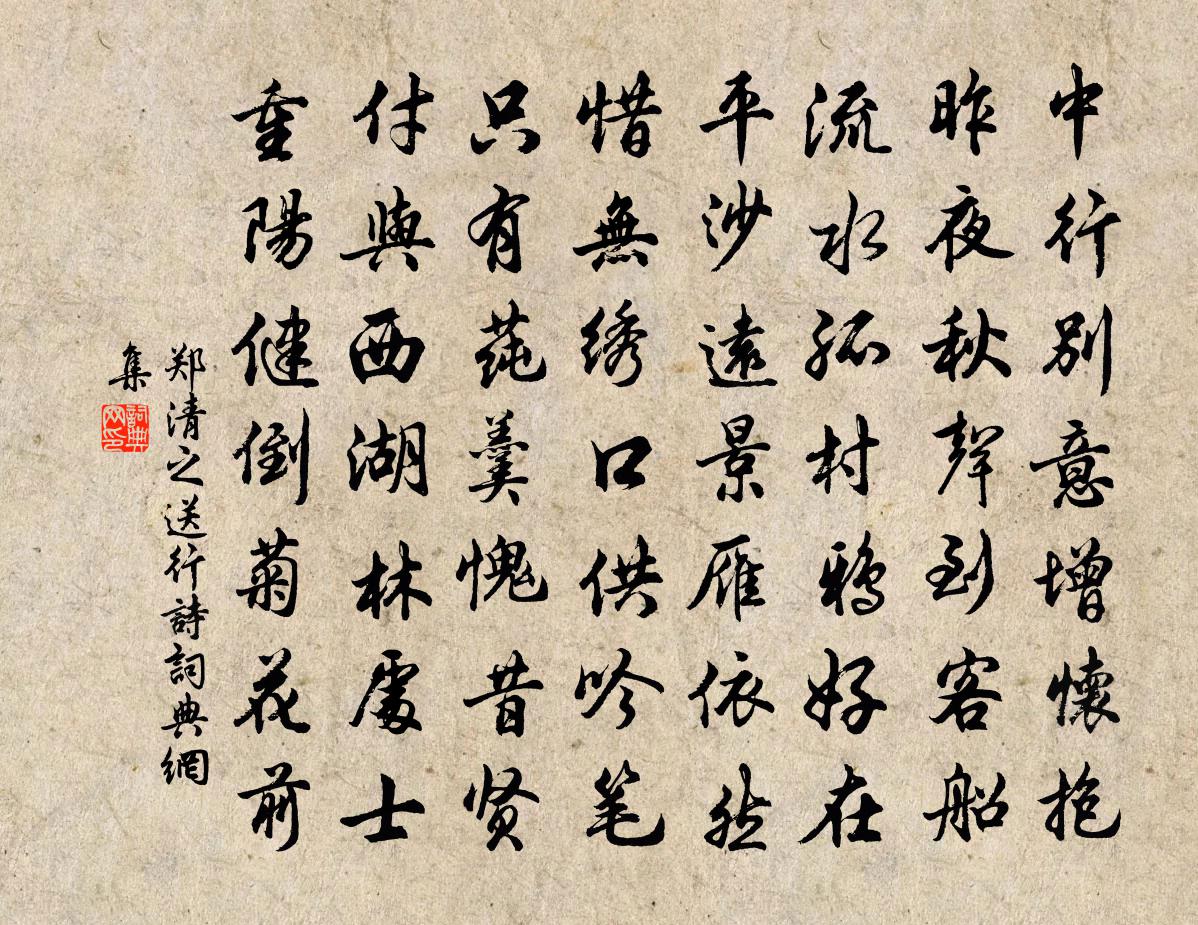 中行别意增懷抱
昨夜秋聲到客船
流水孤村鸦好在
平沙遠景雁依然
惜無绣口供吟笔
只有莼羹愧昔贤
付與西湖林處士
重陽健倒菊花前
郑清之送行詩詞典網
集
詞典
网印